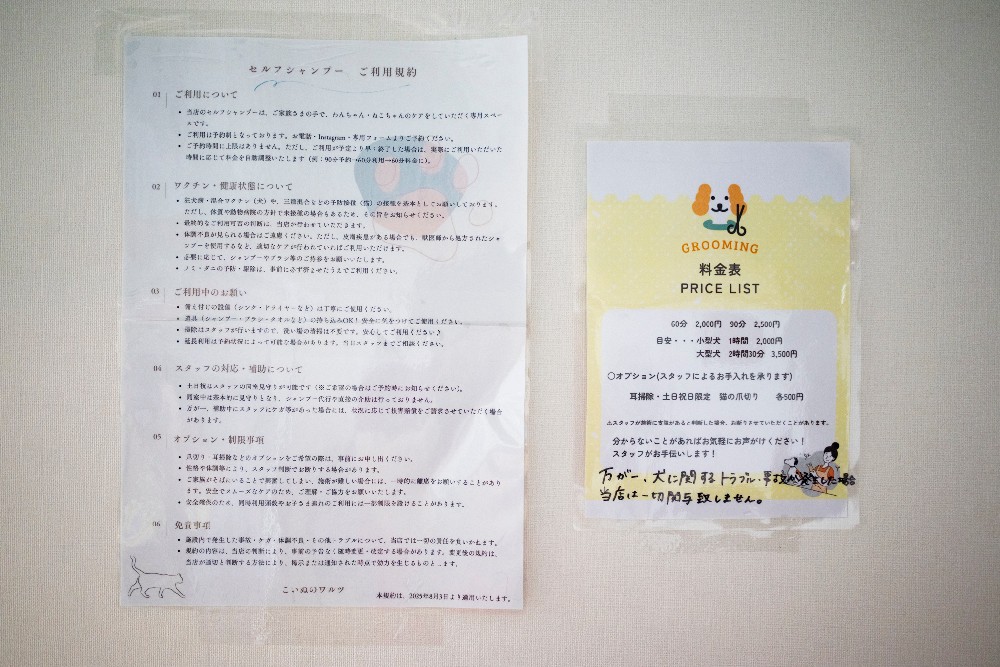 セルフシャンプー ご利用規約
01 ご利用について
・当店のセルフシャンプーは、ご家族さまの手で、わんちゃん・ねこちゃんのケアをしていただく専用スペー
スです。
・ご利用は予約制となっております。お電話・Instagram・専用フォームよりご予約ください。
・ご予約時間に上限はありません。ただし、ご利用が予定より早く終了した場合は、実際にご利用いただいた
時間に応じて料金を自動調整いたします（例：90分予約→60分利用→60分料金に）。
02 ワクチン・健康状態について
・狂犬病・混合ワクチン（犬）や、三種混合などの予防接種（猫）の接種を基本としてお願いしております。
ただし、体質や動物病院の方針で未接種の場合もあるため、その旨をお知らせください。
・最終的なご利用可否の判断は、当店が行わせていただきます。
・体調不良が見られる場合はご遠慮ください。ただし、皮膚疾患がある場合でも、獣医師から処方されたシャ
ンプーを使用するなど、適切なケアが行われていればご利用いただけます。
・必要に応じて、シャンプーやブラシ等のご持参をお願いいたします。
・ノミ・ダニの予防・駆除は、事前に必ず済ませたうえでご利用ください。
03 ご利用中のお願い
・備え付けの設備（シンク・ドライヤーなど）は丁寧にご使用ください。
・道具（シャンプー・ブラシ・タオルなど）の持ち込みOK！安全に気をつけてご使用ください。
・掃除はスタッフが行いますので、洗い場の清掃は不要です。安心してご利用ください♪
・延長利用は予約状況によって可能な場合があります。当日スタッフまでご相談ください。
04 スタッフの対応・補助について
・土日祝はスタッフの同室見守りが可能です（※ご希望の場合はご予約時にお知らせください）。
・同室中は基本的に見守りとなり、シャンプー代行や直接の介助は行っておりません。
・万が一、補助中にスタッフにケガ等があった場合には、状況に応じて損害賠償をご請求させていただく場合
があります。
05 オプション・制限事項
・爪切り・耳掃除などのオプションをご希望の際は、事前にお申し出ください。
・性格や体調等により、スタッフ判断でお断りする場合があります。
・ご家族がそばにいることで興奮してしまい、施術が難しい場合には、一時的に離席をお願いすることがあり
ます。安全でスムーズなケアのため、ご理解・ご協力をお願いいたします。
・安全確保のため、同時利用頭数やお子さま連れのご利用には一部制限を設けることがあります。
06 免責事項
・施設内で発生した事故・ケガ・体調不良・その他トラブルについて、当店では一切の責任を負いかねます。
・規約の内容は、当店の判断により、事前の予告なく随時変更・改定する場合があります。変更後の規約は、
当店が適切と判断する方法により、掲示または通知された時点で効力を生じるものとします。
こいぬのワルツ
本規約は、2025年8月3日より適用いたします。
GROOMING
料金表
PRICE LIST
60分 2,000円 90分 2,500円
目安・・・小型犬 1時間 2,000円
大型犬 2時間30分 3,500円
○オプション(スタッフによるお手入れを承ります)
耳掃除・土日祝日限定 猫の爪切り 各500円
※スタッフが施術に支障があると判断した場合、お断りさせていただくことがあります。
分からないことがあればお気軽にお声がけください！
スタッフがお手伝いします！
万が一、犬に関するトラブル・事故が発生した場合
当店は一切関与致しません。